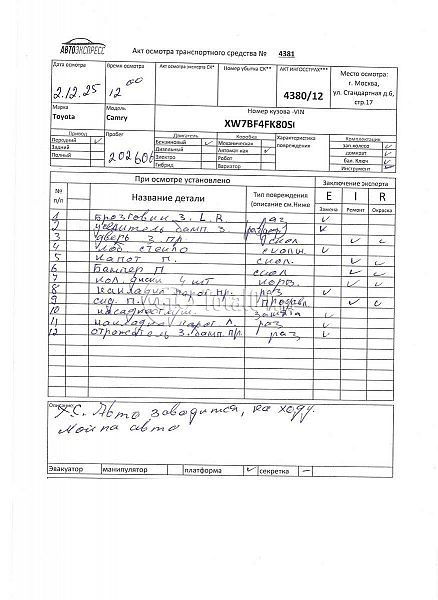 АВТОЭКСПРЕСС
Акт осмотра транспортного средства № 4381
Дата осмотра Время осмотра Акт осмотра эксперта СК* Номер убытка СК** АКТ ИНГОССТРАХ*** Место осмотра:
2.12.25 12 00 4380/12 г. Москва,
ул. Стандартная д.6,
стр.17
Марка Модель Номер кузова -VIN
Toyota Camry XW7BF4FK80S
Привод Пробег Двигатель Коробка Характеристика повреждения Комплектация
Передний ✓ 202606 Бензиновый ✓ Механическая зап.колесо ✓
Задний Дизельный Автомат кая ✓ домкрат ✓
Полный Электро Робот бал. Ключ ✓
Гибрид Вариатор Инструмент
№ п/п При осмотре установлено Заключение эксперта
Название детали Тип повреждения (описание см.Ниже E I R
Замена Ремонт Окраска
1 Брызговик З. L. R раз ✓
2 усилитель бамп. З. ✓
3 дверь З. пр. скол ✓ ✓
4 Лоб. стекло сколы. ✓
5 Капот П. скол. ✓ ✓
6 Бампер П скол ✓ ✓
7 Кол. диски 4 шт ✓ ✓
8 накладка порог пр. раз ✓
9 сид. П. ✓ ✓
10 ✓
11 накладка порог Л. раз ✓
12 отражатель З. бамп. пр. раз ✓
Описание:
Х.С. Авто заводится, на ходу.
Мойка авто
Эвакуатор манипулятор платформа ✓ секретка –